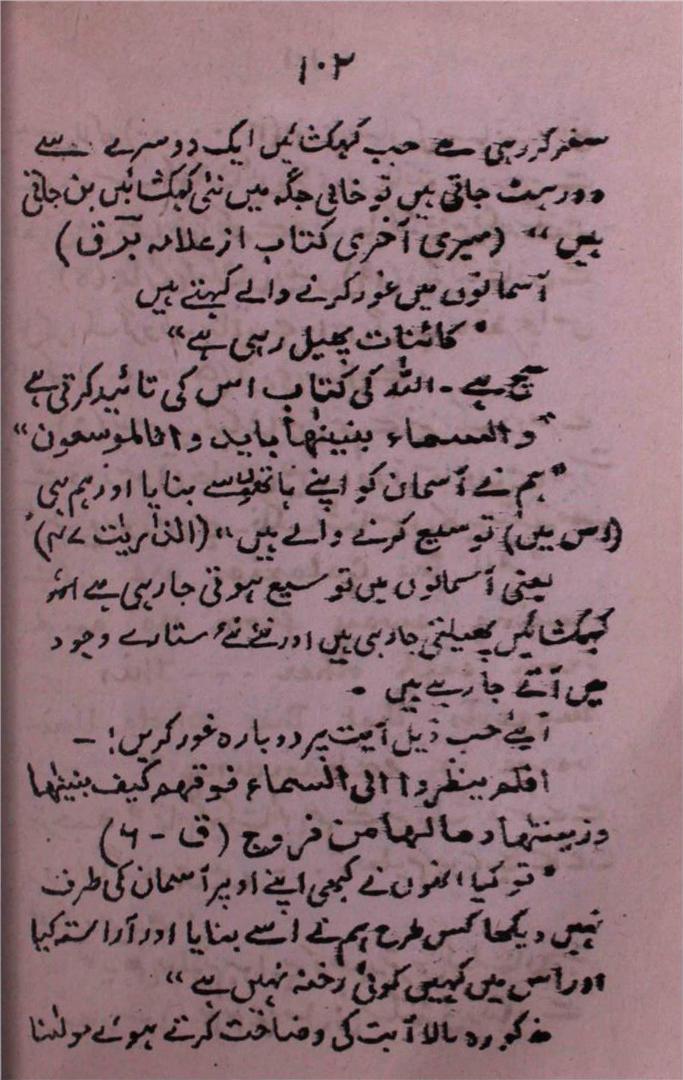 ۱۰۲
سفر کر رہی ہے جب کہکشائیں ایک دوسرے سے
دور ہٹ جاتی ہیں تو خالی جگہ میں نئی کہکشائیں بن جاتی
ہیں“ (میری آخری کتاب از علامہ برق)
آسمانوں میں غور کرنے والے کہتے ہیں
"کائنات پھیل رہی ہے“
سچ ہے۔ اللہ کی کتاب اس کی تائید کرتی ہے
"والسماء بنینٰھا باید وانا لموسعون“
"ہم نے آسمان کو اپنے ہاتھوں سے بنایا اور ہم ہی
(اس میں) توسیع کرنے والے ہیں“ (الذٰریٰت ۴۷)
یعنی آسمانوں میں توسیع ہوتی جا رہی ہے اور
کہکشائیں پھیلتی جا رہی ہیں اور نئے نئے ستارے وجود
میں آتے جا رہے ہیں۔
آیئے حسب ذیل آیت پر دوبارہ غور کریں! –
افلم ینظروا الی السماء فوقھم کیف بنینٰھا
وزینٰھا ومالھا من فروج (ق - ۶)
"تو کیا انھوں نے کبھی اپنے اوپر آسمان کی طرف
نہیں دیکھا کس طرح ہم نے اسے بنایا اور آراستہ کیا
اور اس میں کہیں کوئی رخنہ نہیں ہے“
مذکورہ بالا آیت کی وضاحت کرتے ہوئے مولٰینا